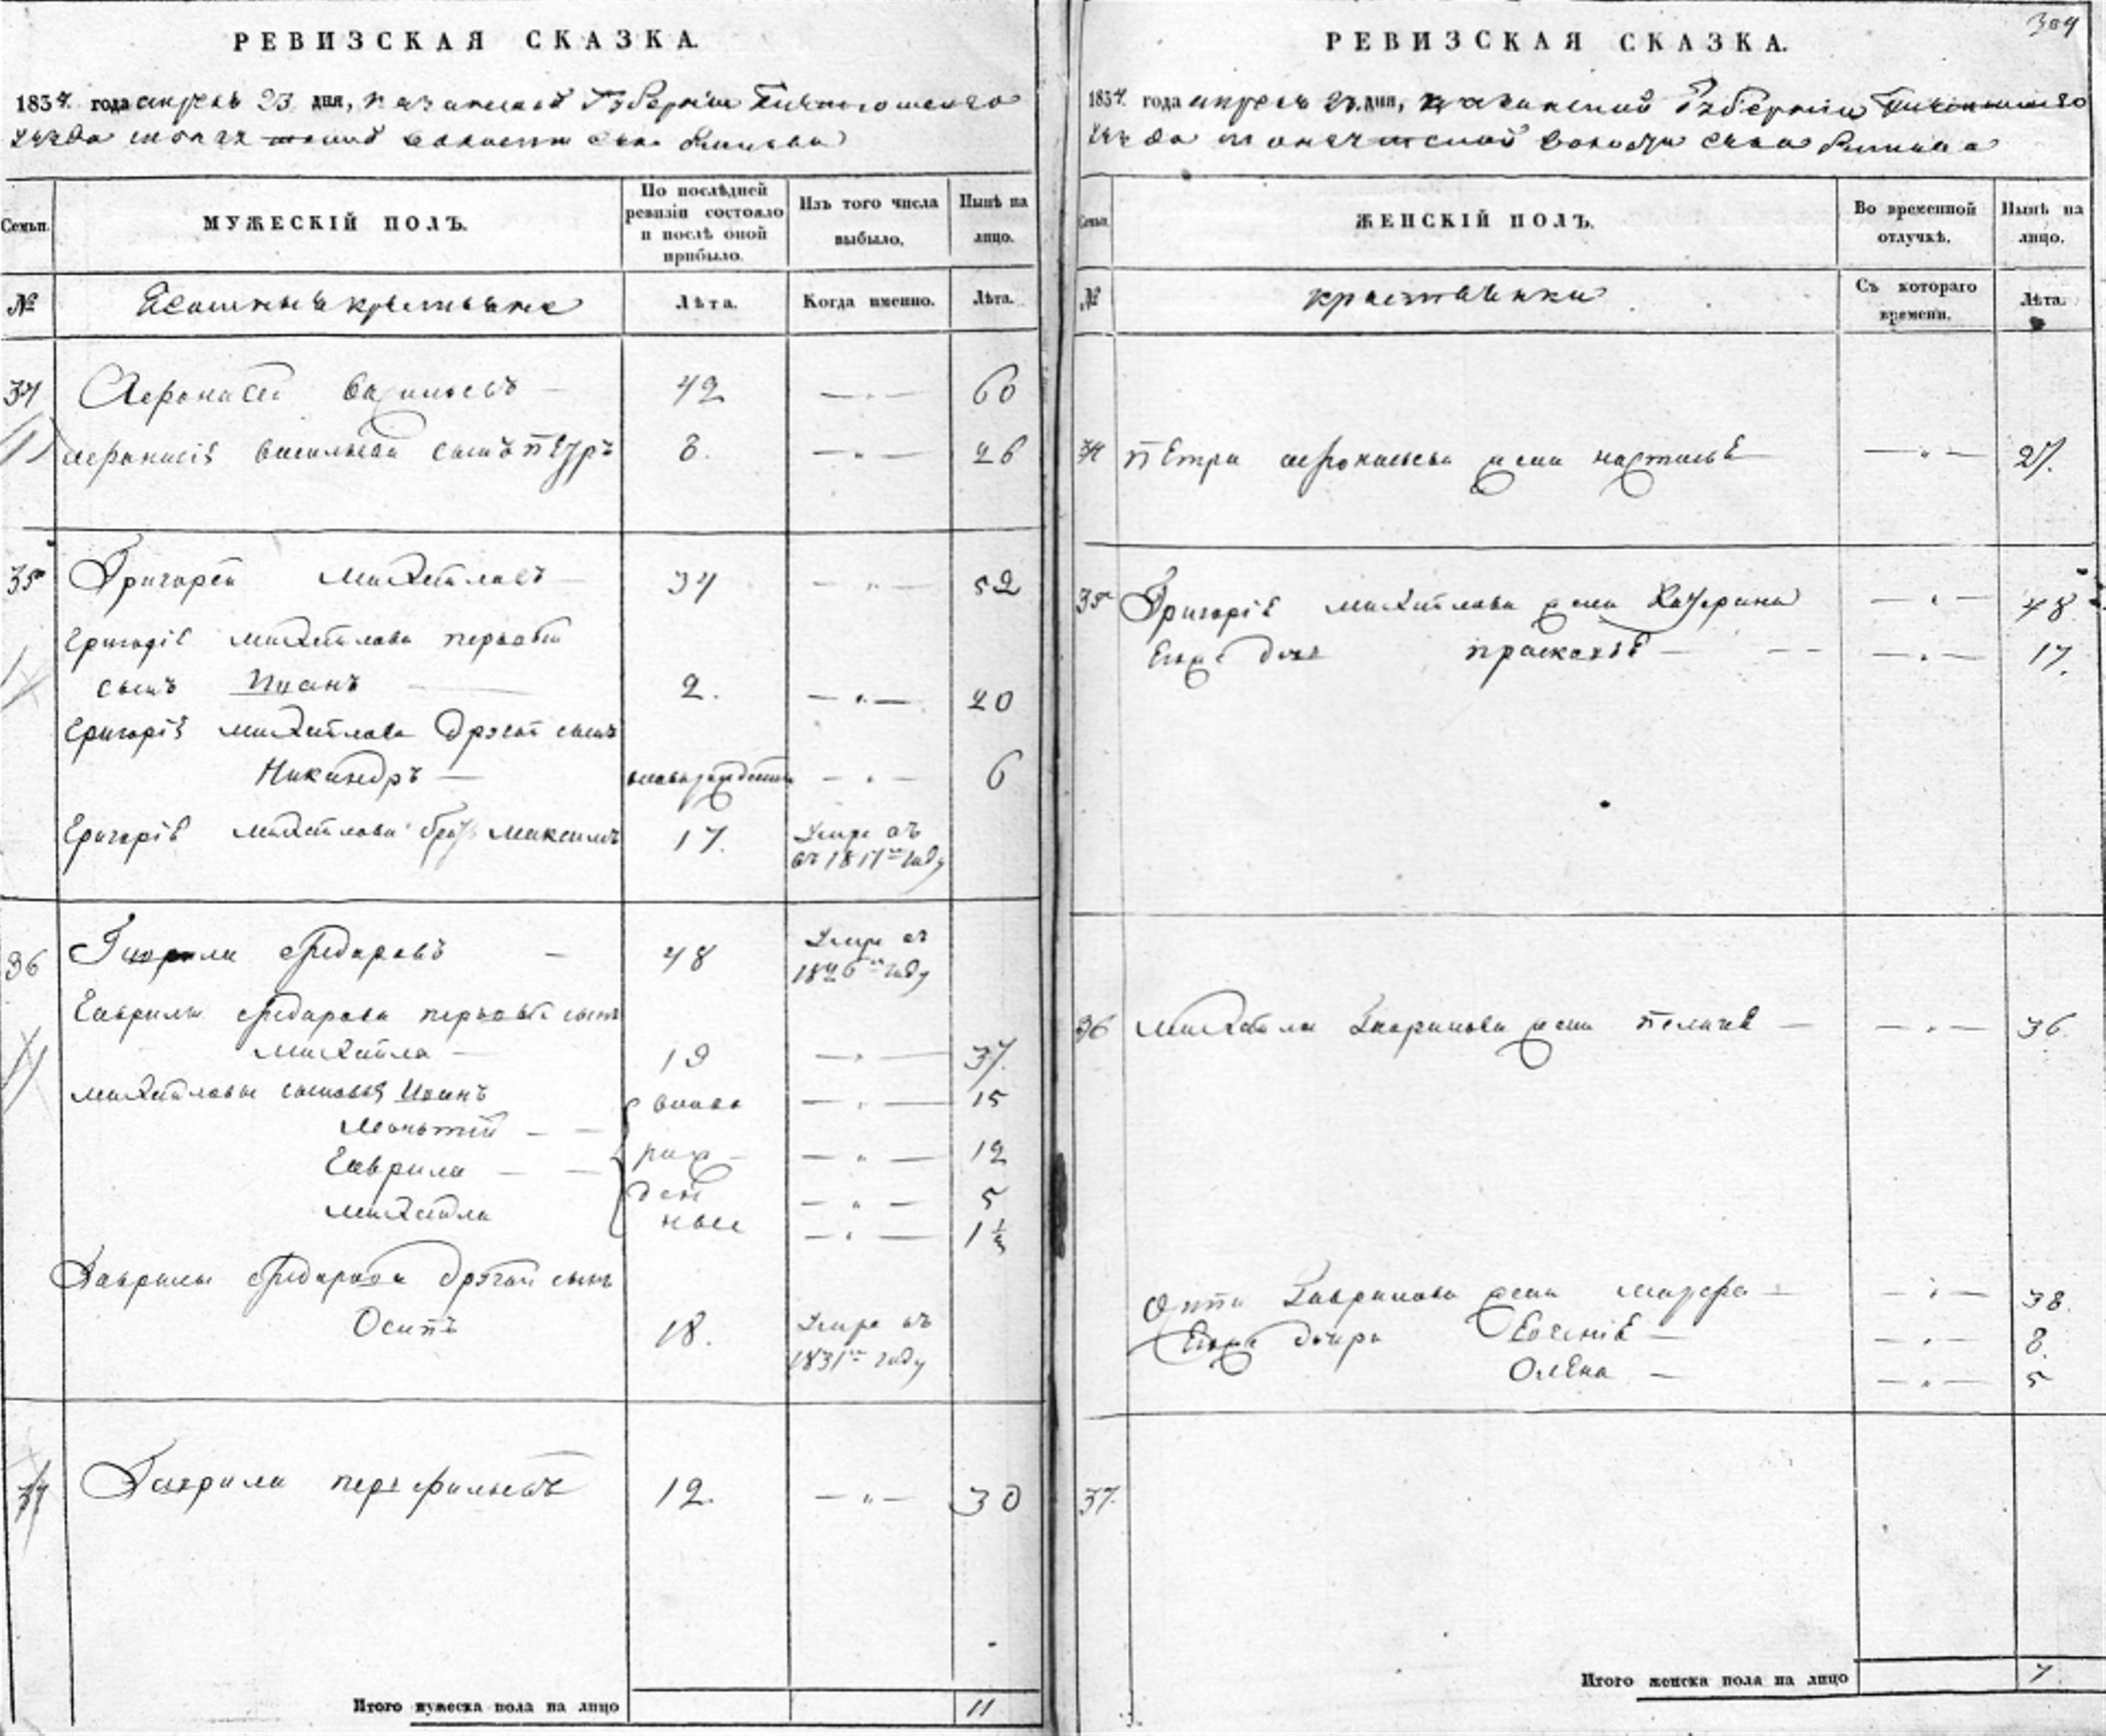 РЕВИЗСКАЯ СКАЗКА.
1834 года апреля 23 дня, Казанской Губернiи
уезда волости села
Семьи. МУЖЕСКIЙ ПОЛЪ. По послѣдней ревизiи состояло и послѣ оной прибыло. Изъ того числа выбыло. Нынѣ на лицо.
№ крестьяне Лѣта. Когда именно. Лѣта.
34 Афонасей Васильевъ — 42 — „ — 60
Афонасiя Васильева сынъ Пётръ 8. — „ — 26
35 Григорей Михайловъ — 34 — „ — 52
Григорiя Михайлова первый
сынъ Иванъ — 2. — „ — 20
Григорiя Михайлова другой сынъ
Никандръ — вновьрожденный — „ — 6
Григорiя Михайлова братъ Максимъ 17. Умре въ
въ 1817м году
36 Гаврила Федоровъ — 48 Умре въ
1826м году
Гаврилы Федорова первый сынъ
Михайла — 19 — „ — 37.
Михайловы сыновья Иванъ вново — „ — 15
— — — „ — 12
Гаврила — — рож — „ — 5
Михайла ден ные — „ — 1 ½
Гаврилы Федорова другой сынъ
Осипъ 18. Умре въ
1831м году
37 Гаврила Перфильевъ 12. — „ — 30
Итого мужеска пола на лицо 11
309
РЕВИЗСКАЯ СКАЗКА.
1834 года апреля 23 дня, Казанской Губернiи
уезда волости села
Семьи. ЖЕНСКIЙ ПОЛЪ. Во временной отлучкѣ. Нынѣ на лицо.
№ крестьянки Съ котораго времени. Лѣта.
34 Петра Афонасьева жена Настасья — „ — 27.
35 Григорiя Михайлова жена Катерина — „ — 48
Ево дочь Прасковья — — — — „ — 17.
36 Михайлы Гаврилова жена Пелагея — — „ — 36
Осипа Гаврилова жена — — „ — 38.
Ево дочери Евгенiя — — „ — 8.
Олена — — „ — 5
37.
Итого женска пола на лицо 7